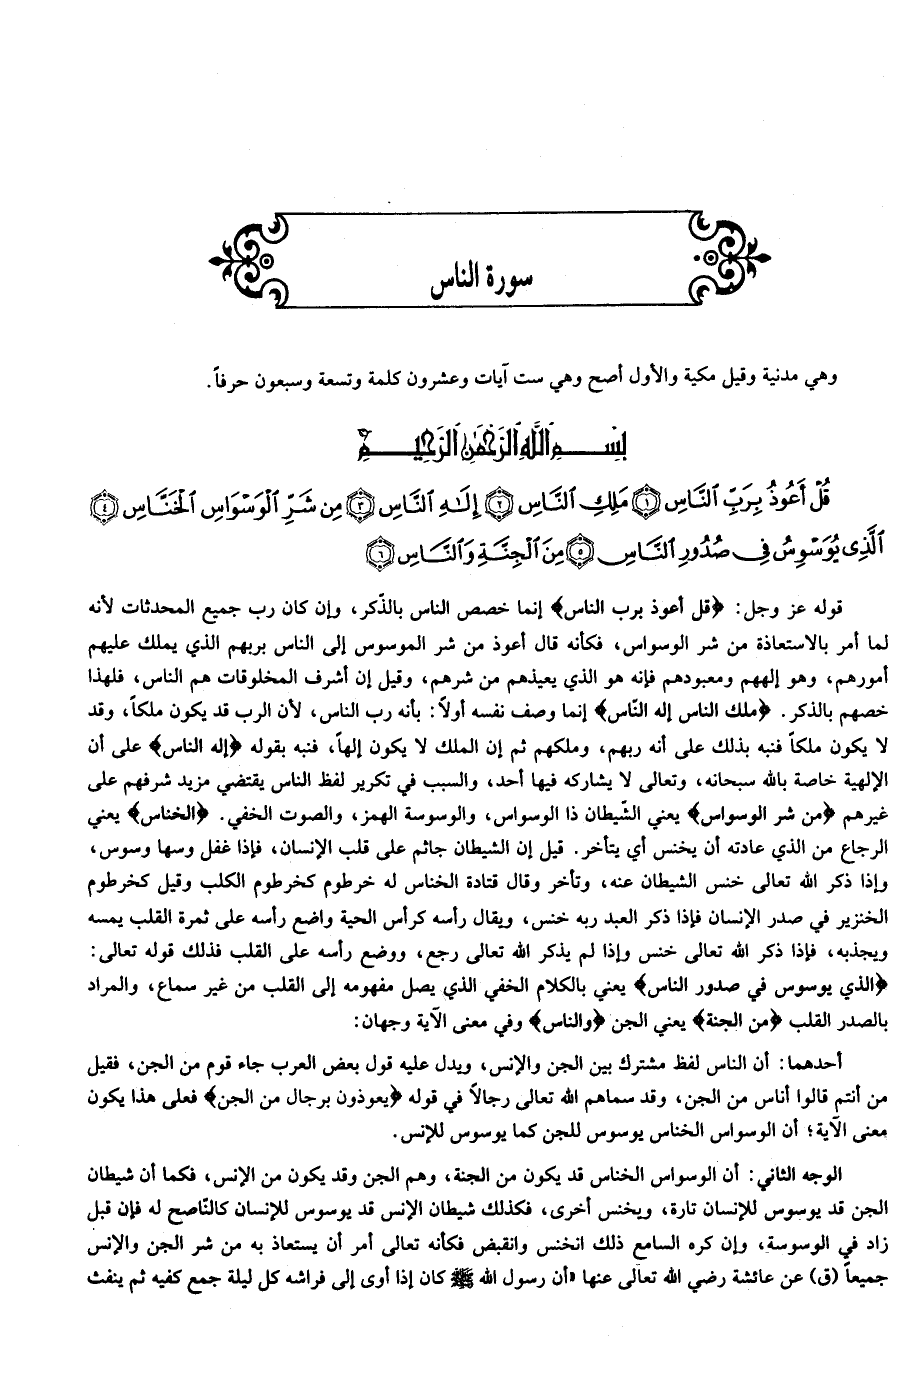 سورة الناس
وهي مدنية وقيل مكية والأول أصح وهي ست آيات وعشرون كلمة وتسعة وسبعون حرفاً.
بِسْمِ ٱللَّهِ ٱلرَّحْمَٰنِ ٱلرَّحِيمِ
قُلْ أَعُوذُ بِرَبِّ ٱلنَّاسِ ﴿١﴾ مَلِكِ ٱلنَّاسِ ﴿٢﴾ إِلَٰهِ ٱلنَّاسِ ﴿٣﴾ مِن شَرِّ ٱلْوَسْوَاسِ ٱلْخَنَّاسِ ﴿٤﴾
ٱلَّذِى يُوَسْوِسُ فِى صُدُورِ ٱلنَّاسِ ﴿٥﴾ مِنَ ٱلْجِنَّةِ وَٱلنَّاسِ ﴿٦﴾
قوله عز وجل: ﴿قل أعوذ برب الناس﴾ إنما خصص الناس بالذّكر، وإن كان رب جميع المحدثات لأنه
لما أمر بالاستعاذة من شر الوسواس، فكأنه قال أعوذ من شر الموسوس إلى الناس بربهم الذي يملك عليهم
أمورهم، وهو إلههم ومعبودهم فإنه هو الذي يعيذهم من شرهم، وقيل إن أشرف المخلوقات هم الناس، فلهذا
خصهم بالذكر. ﴿ملك الناس إله النّاس﴾ إنما وصف نفسه أولاً: بأنه رب الناس، لأن الرب قد يكون ملكاً، وقد
لا يكون ملكاً فنبه بذلك على أنه ربهم، وملكهم ثم إن الملك لا يكون إلهاً، فنبه بقوله ﴿إله الناس﴾ على أن
الإلهية خاصة بالله سبحانه، وتعالى لا يشاركه فيها أحد، والسبب في تكرير لفظ الناس يقتضي مزيد شرفهم على
غيرهم ﴿من شر الوسواس﴾ يعني الشّيطان ذا الوسواس، والوسوسة الهمز، والصوت الخفي. ﴿الخناس﴾ يعني
الرجاع من الذي عادته أن يخنس أي يتأخر. قيل إن الشيطان جاثم على قلب الإنسان، فإذا غفل وسها وسوس،
وإذا ذكر الله تعالى خنس الشيطان عنه، وتأخر وقال قتادة الخناس له خرطوم كخرطوم الكلب وقيل كخرطوم
الخنزير في صدر الإنسان فإذا ذكر العبد ربه خنس، ويقال رأسه كرأس الحية واضع رأسه على ثمرة القلب يمسه
ويجذبه، فإذا ذكر الله تعالى خنس وإذا لم يذكر الله تعالى رجع، ووضع رأسه على القلب فذلك قوله تعالى:
﴿الذي يوسوس في صدور الناس﴾ يعني بالكلام الخفي الذي يصل مفهومه إلى القلب من غير سماع، والمراد
بالصدر القلب ﴿من الجنة﴾ يعني الجن ﴿والناس﴾ وفي معنى الآية وجهان:
أحدهما: أن الناس لفظ مشترك بين الجن والإنس، ويدل عليه قول بعض العرب جاء قوم من الجن، فقيل
من أنتم قالوا أناس من الجن، وقد سماهم الله تعالى رجالاً في قوله ﴿يعوذون برجال من الجن﴾ فعلى هذا يكون
معنى الآية؛ أن الوسواس الخناس يوسوس للجن كما يوسوس للإنس.
الوجه الثاني: أن الوسواس الخناس قد يكون من الجنة، وهم الجن وقد يكون من الإنس، فكما أن شيطان
الجن قد يوسوس للإنسان تارة، ويخنس أخرى، فكذلك شيطان الإنس قد يوسوس للإنسان كالنّاصح له فإن قبل
زاد في الوسوسة، وإن كره السامع ذلك انخنس وانقبض فكأنه تعالى أمر أن يستعاذ به من شر الجن والإنس
جميعاً (ق) عن عائشة رضي الله تعالى عنها «أن رسول الله ﷺ كان إذا أوى إلى فراشه كل ليلة جمع كفيه ثم ينفث